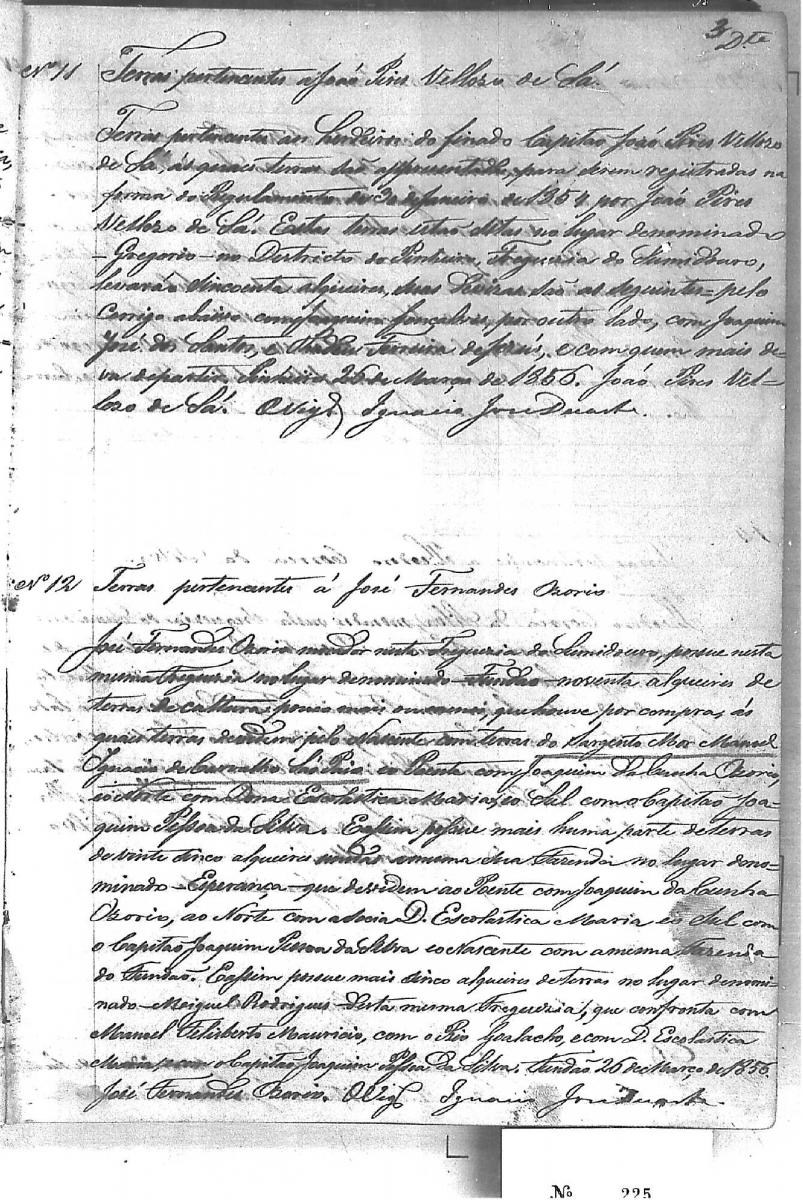 3 Dte
Nº 11 Terras pertencentes a João Pires Vellozo de Sá.
Terras pertencentes aos herdeiros do finado Capitão João Pires Vellozo
de Sá, ás quaes terras são appresentadas, para serem registradas na
forma do Regulamento de 30 de Janeiro de 1854 por João Pires
Vellozo de Sá. Estas terras estão sitas no lugar denominado
- Gregorio - no Districto do Pinheiro, Freguezia do Sumidouro,
levarão sincoenta alqueires, suas devizas são as seguintes = pelo
Corrigo abaixo com Joaquim Gonçalves, por outro lado, com Joaquim
José dos Santos, e Ferreira de Jesús, e com quem mais de-
va departir. Pinheiro 26 de Março de 1856. João Pires Vel-
lozo de Sá. O Vigº Ignacio José Duarte.
Nº 12 Terras pertencentes á José Fernandes Ozorio
José Fernandes Ozorio morador nesta Freguezia do Sumidouro, possue nesta
mesma Freguezia no lugar denominado - Fundão - noventa alqueires de
terras de cultura, pouco mais ou menos, que houve por compra, ás
quaes terras devidem pelo Nascente com terras do Sargento Mor Manoel
Ignacio de Carvalho São Paio eo Poente com Joaquim da Cunha Ozorio,
eo Norte com Dona Escolastica Maria, eo Sul com o Capitão Joa-
quim Pessoa da Silva. Eassim possue mais huma parte de terras
de vinte sinco alqueires unidas a mesma sua Fazenda no lugar deno-
minado - Esperança - que devidem ao Poente com Joaquim da Cunha
Ozorio, ao Norte com a socia D. Escolastica Maria eo Sul com
o Capitão Joaquim Pessoa da Silva eo Nascente com a mesma Fazenda
do Fundão. Eassim possue mais sinco alqueires de terras no lugar denomi-
nado - Meiguel Rodrigues - desta mesma Freguezia, que confronta com
Manoel Feliberto Mauricio, com o Rio Gualacho, e com D. Escolastica
Maria, o Capitão Joaquim Pessoa da Silva. Fundão 26 de Março de 1856.
José Fernandes Ozorio. O Vigº Ignacio José Duarte.
Nº 225